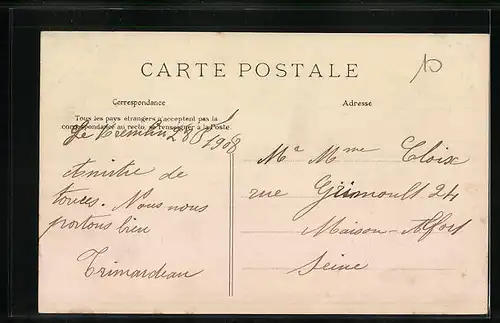 CARTE POSTALE
Correspondance
Adresse
Tous les pays étrangers n'acceptent pas la
correspondance au recto, se renseigner à la Poste.
Le Kremlin 28/8/1908
Amitié de
toutes. Nous nous
portons bien
Trimardeau
Mr Mme Cloix
rue Grimoult 24
Maison-Alfort
Seine
10